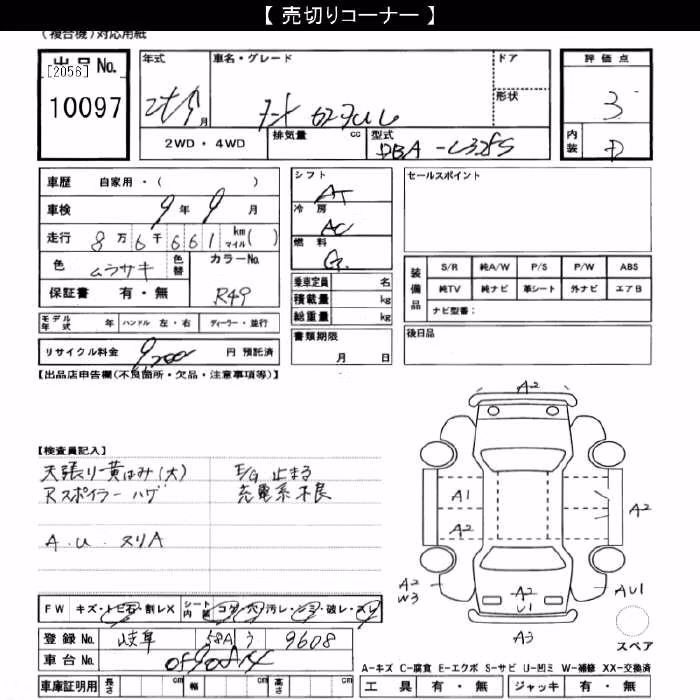 【 売切りコーナー 】
(複合機)対応用紙
出品 No. 年式 車名・グレード ドア 評価点
[2056]
10097 月 形状 3
2WD・4WD 排気量 cc 型式 DBA-L375S 内装 D
車歴 自家用・( ) シフト AT セールスポイント
車検 9 年 9 月 冷房 AC
走行 8 万 6 千 6 6 1 km マイル ( ) 燃料 G
色 ムラサキ 色替 カラーNo. R49
装備品 S/R 純A/W P/S P/W ABS
純TV 純ナビ 革シート 外ナビ エアB
ナビ型番：
保証書 有・無
乗車定員 名
積載量 kg
総重量 kg
モデル年式 年 ハンドル 左・右 ディーラー・並行
書類期限 月 日
後日品
リサイクル料金 円 預託済
【出品店申告欄(不良箇所・欠品・注意事項等)】
【検査員記入】
天張り黄ばみ(大) E/G 止まる
Rスポイラー ハゲ 充電系不良
A.U. スリA
A2
A1
A2
A2
A2
W3
A2
U1
AU1
A3
スペア
FW キズ・トビ石・割レX シート内装 コゲ・穴・汚レ・シミ・破レ・スレ
登録 No. 岐阜 58A う 9608
車台 No.
車庫証明用 長さ cm 幅 cm 高さ cm
A-キズ C-腐食 E-エクボ S-サビ U-凹ミ W-補修 XX-交換済
工具 有・無 ジャッキ 有・無